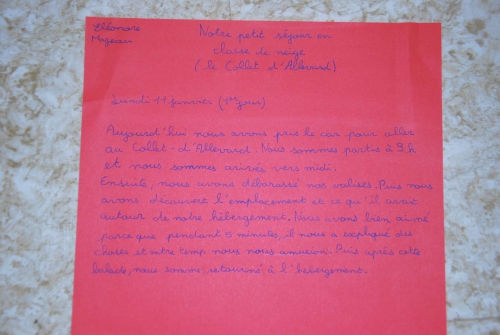 Eléonore
Mazeau
Notre petit séjour en
classe de neige
(le Collet d'Allevard)
Lundi 11 janvier (1er jour)
Aujourd'hui nous avons pris le car pour aller
au Collet-d'Allevard. Nous sommes partis à 9h
et nous sommes arrivés vers midi.
Ensuite, nous avons débarassé nos valises. Puis nous
avons découvert l'emplacement et ce qu'il avait
autour de notre hébergement. Nous avons bien aimé
parce que pendant 5 minutes, il nous a expliqué des
choses et entre temp nous nous amusion. Puis après cette
balade, nous somme retourné à l'hébergement.